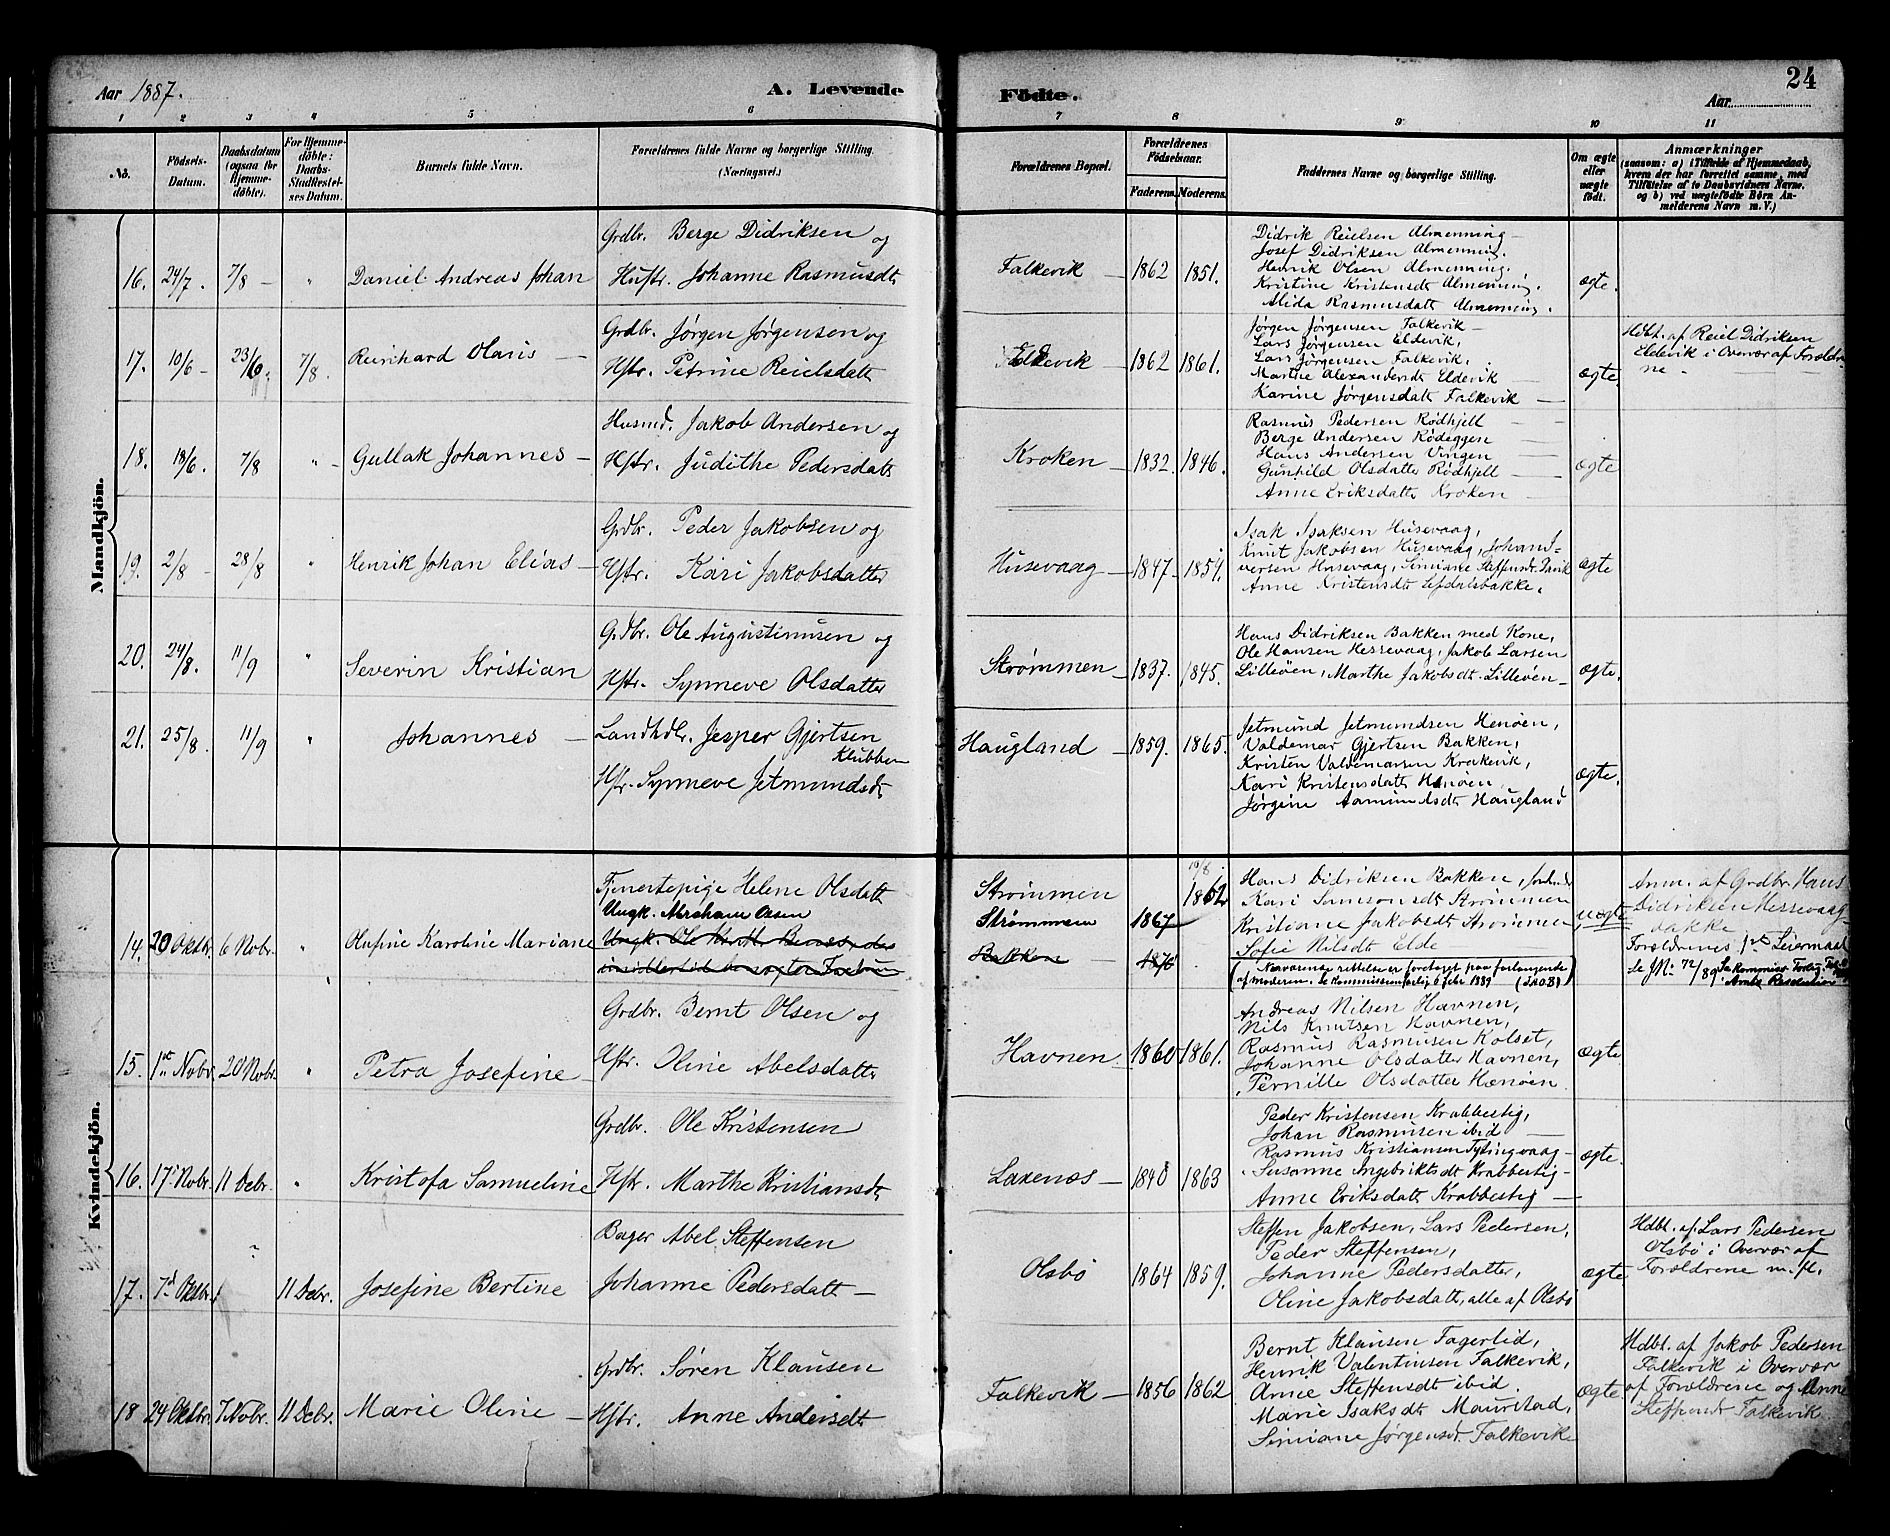 Aar 1887.
A. Levende
Födte.
24
Aar
1
2
3
4
5
6
7
8
9
10
11
No.
Födsels-
Datum.
Daabsdatum
(ogsaa for
Hjemme-
döbte).
For Hjemme-
döbte:
Daabs-
Stadfestel-
ses Datum.
Barnets fulde Navn.
Forældrenes fulde Navne og borgerlige Stilling
(Næringsvei.)
Forældrenes Bopæl.
Forældrenes
Födselsaar.
Faderens.
Moderens.
Faddernes Navne og borgerlige Stilling.
Om ægte
eller
uægte
født.
Anmærkninger
(saasom: a) i Tilfælde af Hjemmedaab,
hvem der har forrettet samme, med
Tilføielse af to Daabsvidners Navne,
og b) ved uægtefödte Börn An-
melderens Navn m. V.)
Mandkjön.
16. 24/7. 7/8 — " Daniel Andreas Johan
Grdbr. Berge Didriksen og
Hustr. Johanne Rasmusdt
Falkevik — 1862 1851.
Didrik Reielsen Almenning —
Josef Didriksen Almenning.
Henrik Olsen Almenning.
Kristine Kristensdt Almenning.
Alida Rasmusdatt Almenning.
ægte.
17. 10/6 — 23/6. 7/8. Reinhard Olaus —
Grdbr. Jørgen Jørgensen og
Hstr. Petrine Reielsdatt
Eldevik 1862 1861.
Jørgen Jørgensen Falkevik —
Lars Jørgensen Eldevik,
Lars Jørgensen Falkevik.
Marthe Alexandersdt Eldevik —
Karine Jørgensdatt Falkevik —
ægte
Hdbt. af Reiel Didriksen
Eldevik i Overvær af Forældre
ne —
18. 18/6. 7/8 " — Gullak Johannes —
Husmd. Jakob Andersen og
Hstr. Judithe Pedersdatt
Kroken — 1832. 1846.
Rasmus Pedersen Rødhjell —
Berge Andersen Rødeggen —
Hans Andersen Vingen —
Gunhild Olsdatter Rødhjell —
Anne Eriksdatt Kroken —
ægte
19. 2/8 — 28/8 " Henrik Johan Elias —
Grdbr. Peder Jakobsen og
Hstr. Kari Jakobsdatter
Husevaag — 1847. 1854.
Isak Isaksen Husevaag,
Knut Jakobsen Husevaag, Johan J=
versen Husevaag, Simiane Steffensdt
Anne Kristensdt Lefdalsbakke.
ægte
20. 24/8. 11/9 " Severin Kristian
Grdbr. Ole Augustinusen og
Hstr. Synneve Olsdatter
Strømmen — 1837. 1845.
Hans Didriksen Bakken med Kone,
Ole Hansen Hessevaag, Jakob Larsen
Lilleöen, Marthe Jakobsdt. Lilleöen —
ægte.
21. 25/8. 11/9 " Johannes —
Landhdlr. Jesper Gjertsen
Klubben
Hstr. Synneve Jetmundsdt
Haugland — 1859. 1865.
Jetmund Jetmundsen Henöen,
Valdemar Gjertsen Bakken,
Kristen Valdemarsen Krakevik,
Kari Kristensdatt Henöen,
Jørgine Aamundsdt Haugland
ægte.
Kvindekjön.
14. 20 Oktbr. 6 Novbr. " Olufine Karoline Mariane
Tjenestepige Helene Olsdatt
Ungk. Abraham Olsen
Strømmen
Strömmen 1867
Bakken 1870.
10/8.
1862
Hans Didriksen Bakken,
Kari Samsonsdt Strømmen
Kristiane Jakobsdt Strømmen
Sofie Nilsdt Elde
(Nærværende rettelse er foretaget paa forlangende
af moderen. Se Kommissionsforlig 6 febr 1889
uægte
Anm. af Grdbr. Hans
Didriksen Hessevaag
bakke
Forældrenes 1ste Leiermaal
Se JN: 72/89.
15. 1ste Novbr. 20 Novbr. " Petra Josefine —
Grdbr. Bernt Olsen og
Hstr. Oline Abelsdatter
Havnen — 1860 1861.
Andreas Nilsen Havnen,
Nils Knutsen Havnen,
Rasmus Rasmusen Kolset,
Johanne Olsdatter Havnen,
Pernille Olsdatter Hænöen.
ægte.
16. 17. Novbr. 11 Debr. " Kristofa Samueline
Grdbr. Ole Kristensen
Hstr. Marthe Kristiansdt
Laxenæs — 1840 1863
Peder Kristensen Krabbestig,
Johan Rasmusen ibid —
Rasmus Kristiansen Tytingvaag —
Susanne Ingebriktsdt Krabbestig —
Anne Eriksdatt Krabbestig —
ægte.
17. 7d Oktbr. " 11 Debr. Josefine Bertine
Bager Abel Steffensen
Johanne Pedersdatt —
Olsbö 1864 1859.
Steffen Jakobsen, Lars Pedersen,
Peder Steffensen,
Johanne Pedersdatter,
Oline Jakobsdatt, alle af Olsbö
ægte
Hdbt. af Lars Pedersen
Olsbö i Overvær af
Forældrene m. fl.
18 24 Oktbr. 7 Novbr. 11 Debr. Marie Oline —
Grdbr. Sören Klausen
Hstr. Anne Andersdt
Falkevik — 1856 1862
Bernt Klausen Fagerlid,
Henrik Valentinsen Falkevik,
Anne Steffensdt ibid.
Marie Isaksdt Maurstad,
Simiane Jørgensd. Falkevik
ægte
Hdbt. af Jakob Pedersen
Falkevik i Overvær
af Forældrene og Anne
Steffensdt Falkevik